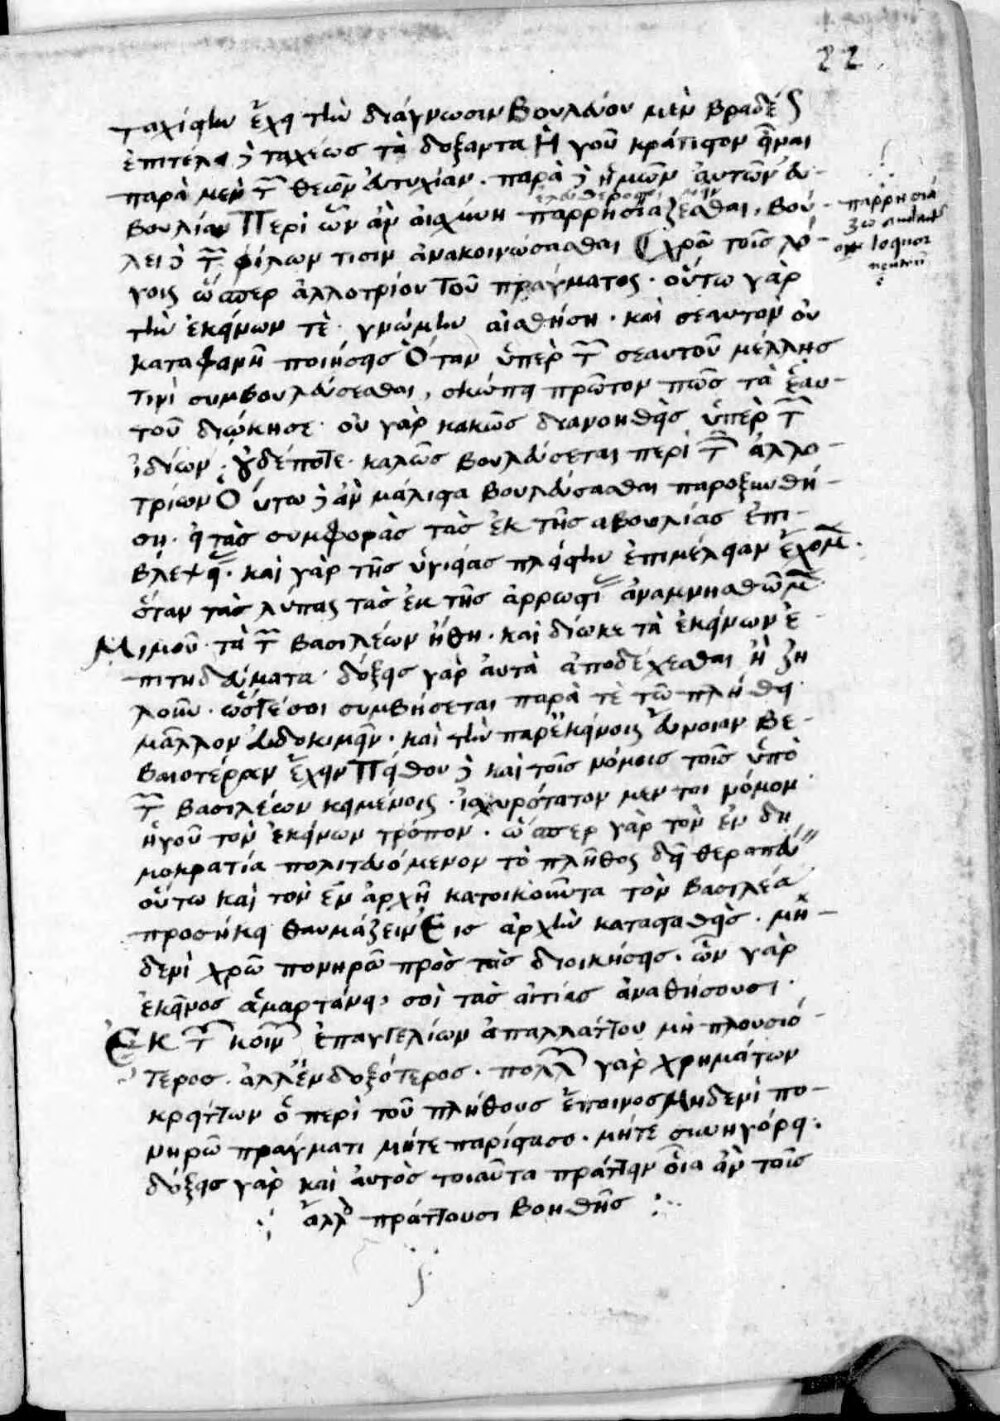 22
ταχίστην ἔχει τὴν διάγνωσιν Βουλεύου μὲν βραδέως
ἐπιτέλει δὲ ταχέως τὰ δόξαντα Ἡγοῦ κράτιστον εἶναι
παρὰ μὲν τῶν θεῶν εὐτυχίαν · παρὰ δὲ ἡμῶν αὐτῶν εὐ-
βουλίαν Περὶ ὧν ἂν αἰσχύνη παρρησιάζεσθαι, βού-
λει δὲ τῶν φίλων τισιν ἀνακοινώσασθαι χρῶ τοῖς λό-
γοις ὥσπερ ἀλλοτρίου τοῦ πράγματος · οὕτω γὰρ
τὴν ἐκείνων τὲ γνώμην αἰσθήση · καὶ σεαυτὸν οὐ
καταφανῆ ποιήσεις Ὅταν ὑπὲρ τῶν σεαυτοῦ μέλλης
τινὶ συμβουλεύσεσθαι, σκώπει πρῶτον πῶς τὰ ἑαυ-
τοῦ διώκησε · οὐ γὰρ κακῶς διανοηθεὶς ὑπὲρ τῶν
ἰδίων · οὐδέποτε καλῶς βουλεύσεται περὶ τῶν ἀλλο-
τρίων Οὕτω δ ἂν μάλιστα βουλεύσασθαι παροξυνθή-
ση · εἰ τὰς συμφορὰς τὰς ἐκ τῆς αβουλίας ἐπι-
βλέψεις · καὶ γὰρ τῆς ὑγιείας πλείστην ἐπιμέλειαν ἔχομεν ·
ὅταν τὰς λύπας τὰς ἐκ τῆς ἀρρωστίας ἀναμνησθῶμεν
Μιμοῦ τὰ τῶν βασιλέων ἤθη · καὶ δίωκε τὰ ἐκείνων ἐ-
πιτηδεύματα · δόξεις γὰρ αὐτὰ ἀποδέχεσθαι ἢ ζη
λοῦν · ὥστε σοι συμβήσεται παρά τὲ τῶ πλήθει
μᾶλλον εὐδοκιμεῖν · καὶ τὴν παρ ἐκείνοις εὔνοιαν βε-
βαιοτέραν ἔχειν Πείθου δὲ καὶ τοῖς νόμοις τοῖς ὑπὸ
τῶν βασιλέων κειμένοις · ἰσχυρότατον μέν τοι νόμον
ἡγοῦ τὸν ἐκείνων τρόπον · ὥσπερ γὰρ τὸν ἐν δη
μοκρατία πολιτευόμενον τὸ πλῆθος δεῖ θεραπεύειν
οὕτω καὶ τὸν ἐν ἀρχῆ κατοικοῦντα τὸν βασιλέα
προσήκει θαυμάζειν Εἰς ἀρχὴν κατασταθεὶς · μη-
δενὶ χρῶ πονηρῶ πρὸς τὰς διοικήσεις · ὧν γὰρ
ἐκεῖνος ἁμαρτάνει, σοὶ τὰς αἰτίας ἀναθήσουσι ·
Ἐκ τῶν κοινῶν ἐπαγγελίων ἀπαλλάττου μὴ πλουσιό-
τερος · ἀλλ ἐνδοξότερος · πολλῶν γὰρ χρημάτων
κρείττων ὁ περὶ τοῦ πλήθους ἔπαινος Μηδενὶ πο-
νηρῶ πράγματι μήτε παρίστασο · μήτε συνηγόρει ·
δόξεις γὰρ καὶ αὐτὸς τοιαῦτα πράττειν οἷα ἂν τοῖς
ἄλλοις πράττουσι βοηθῆς
παρρησιά
ζω
loquor